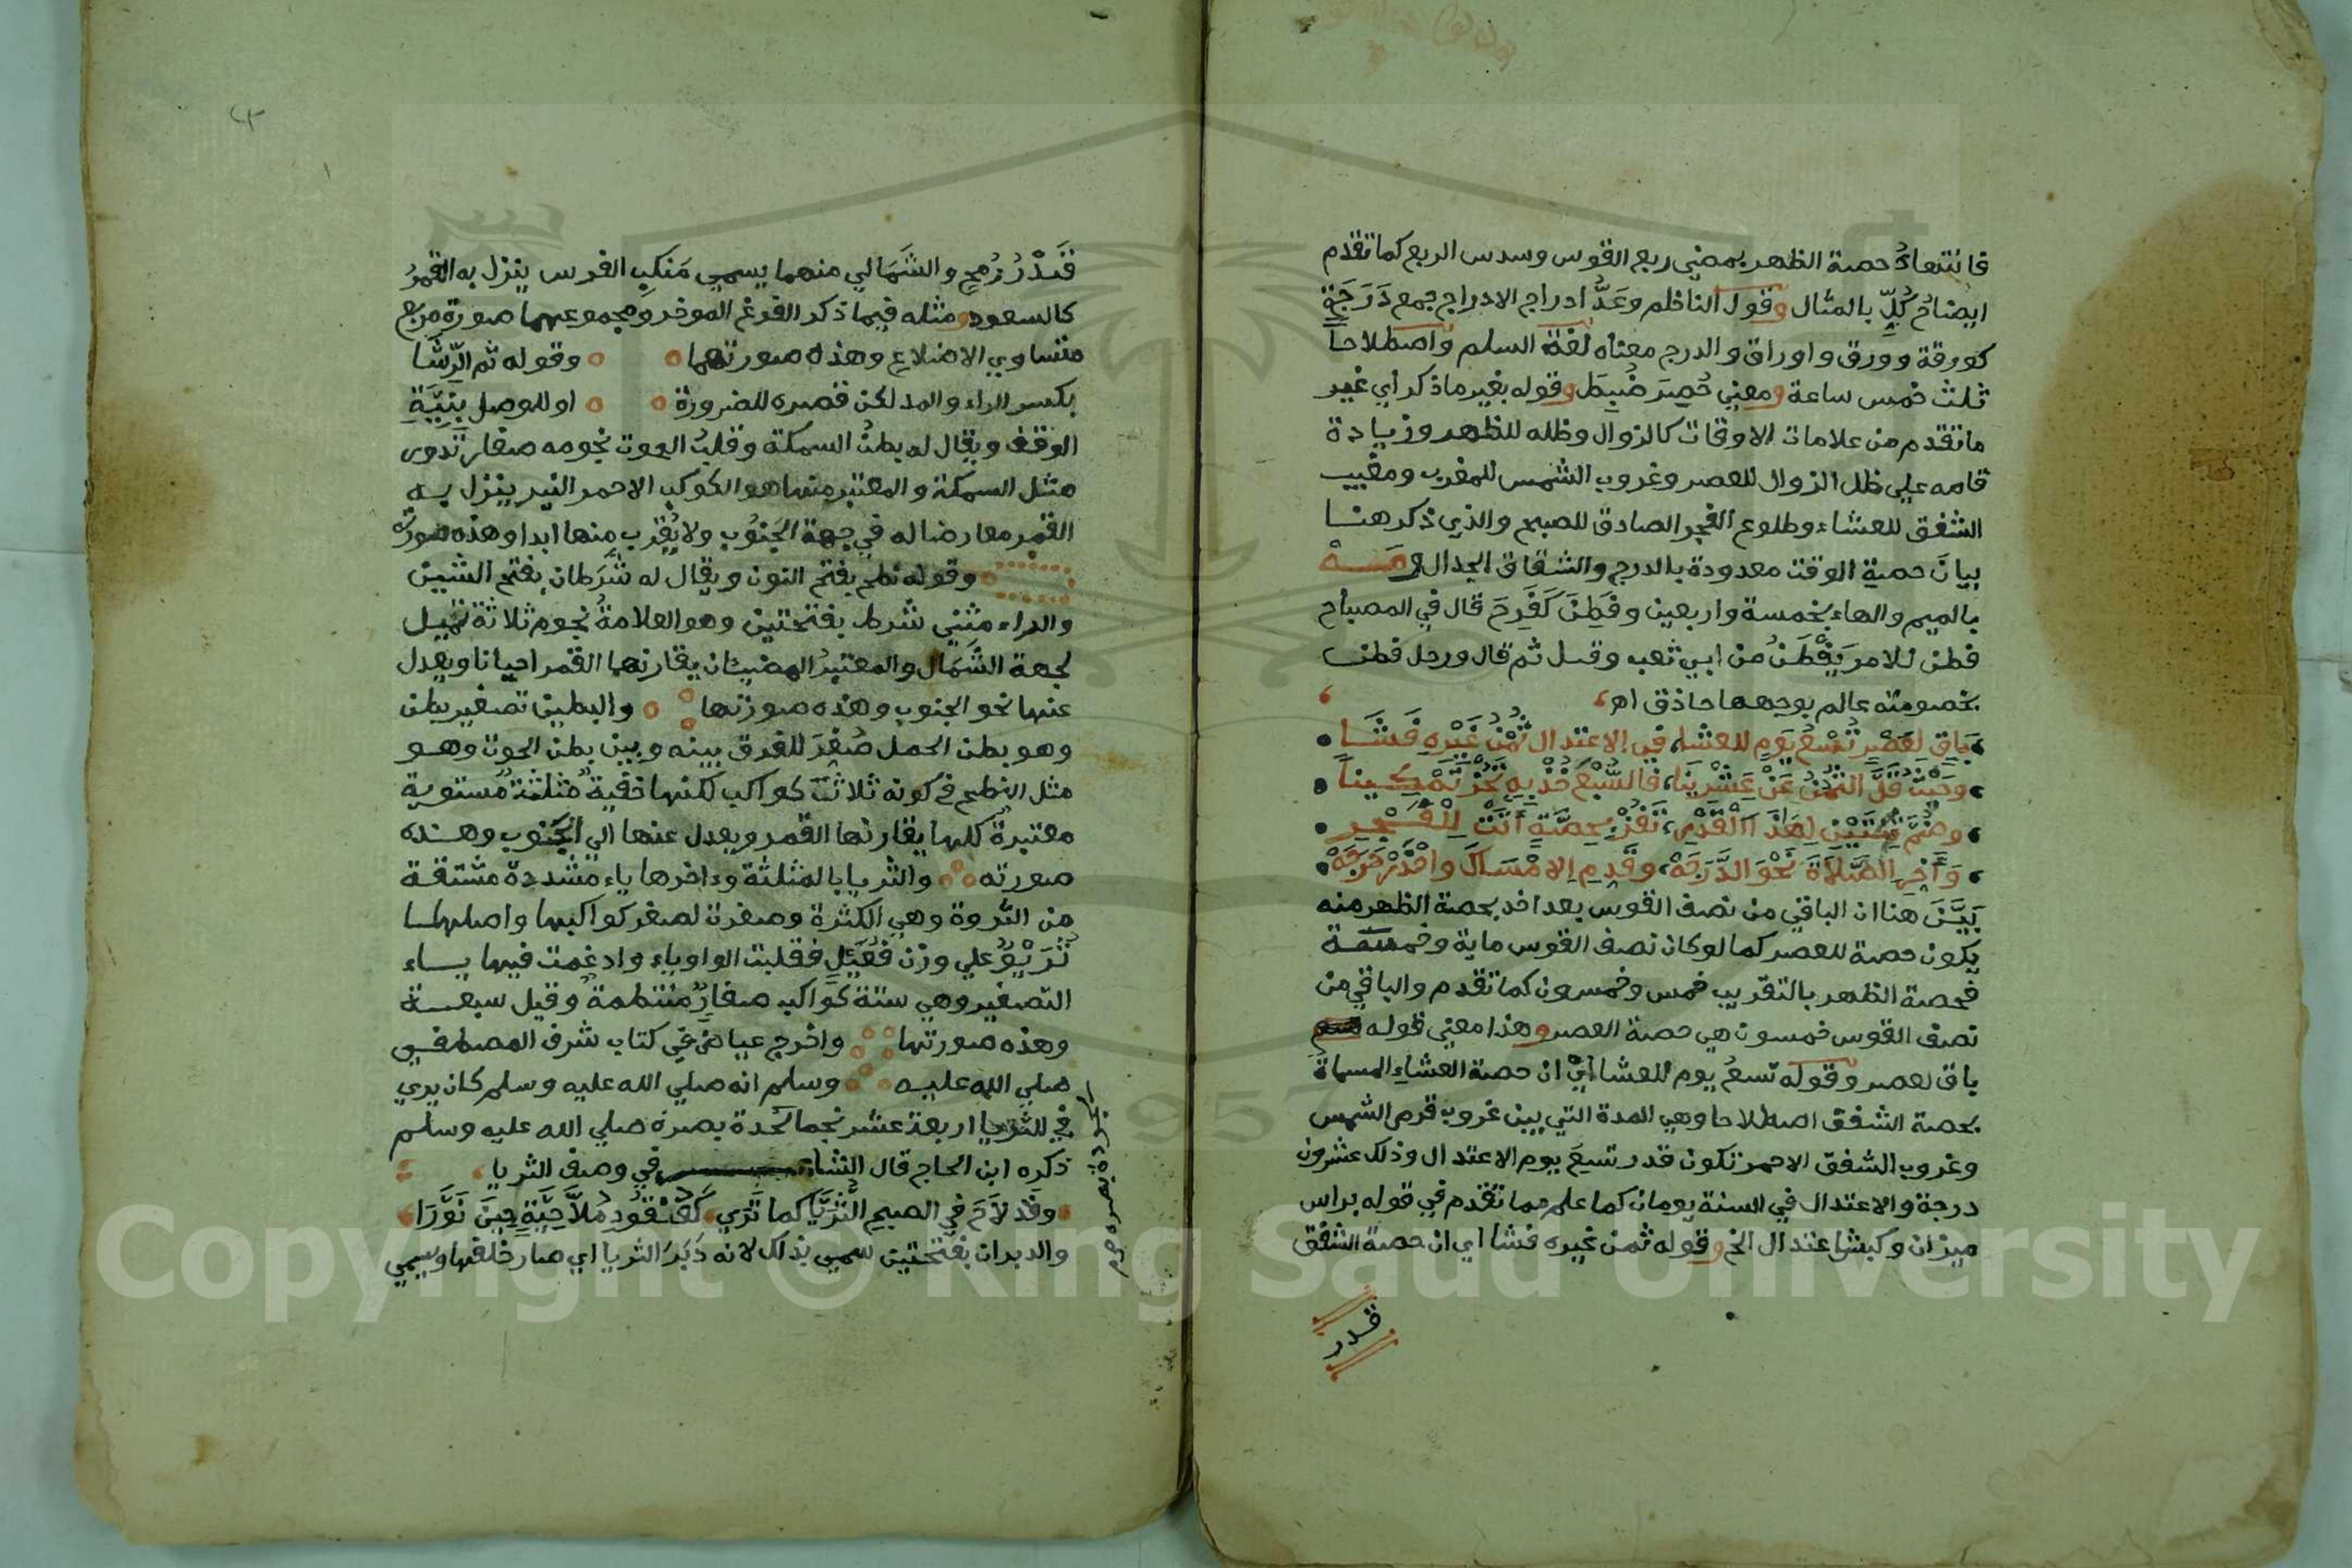 فانتهاءُ حصة الظهر بمضي ربع القوس وسدس الربع كما تقدم
ايضاحُ كُلٍّ بالمثال وقول الناظم وعَدُّ ادراج الادراج جمع دَرَجَةٍ
كورقة وورق واوراق والدرج معناه لغةً السلم واصطلاحاً
ثلث خمس ساعة ومعنى حُصِرَ ضُبِطَ وقوله بغير ما ذكر أي غير
ما تقدم من علامات الاوقات كالزوال وظله للظهر وزيادة
قامه علي ظل الزوال للعصر وغروب الشمس للمغرب ومغيب
الشفق للعشاء وطلوع الفجر الصادق للصبح والذي ذكر هنا
بيانَ حصةِ الوقت معدودة بالدرج والشقاق الجدال ومَــهْ
بالميم والهاء بخمسة واربعين وفَطِنَ كَفَرِحَ قال في المصباح
فطن للامر يَفْطَنُ من ابي تعب وقتل ثم قال ورجل فطن
بخصومته عالم بوجهها حاذق اهـ
بَاقٍ لِعَصْرٍ تُسْعُ يَوْمٍ للعشا، في الاعتدال ثُمْنُ غَيْرِهِ فَشَا
وحَيْثُ قَلَّ الثُّمْنُ عَنْ عِشْرِينَا، فالسُّبْعَ خُذْ بِهِ تَحُزْ تَمْكِينَا
وضُمَّ ثِنْتَيْنِ لِهَذَا الْقَدْرِ، تَفُزْ بِحِصَّةٍ أَتَتْ لِلْفَجْرِ
وَأَخِّرِ الصَّلَاةَ نَحْوَ الدَّرَجَهْ، وقَدِّمِ الامْسَاكَ واحْذَرْ حَرَجَهْ
بَيَّنَ هنا ان الباقي من نصف القوس بعد اخذ بحصة الظهر منه
يكون حصة للعصر كما لو كان نصف القوس ماية وخمسة
فحصة الظهر بالتقريب خمس وخمسون كما تقدم والباقي من
نصف القوس خمسون هي حصة العصر وهذا معنى قوله
باق لعصر وقوله تسعُ يوم للعشا أيْ ان حصة العشاء المسماةَ
بحصة الشفق اصطلاحا وهي المدة التي بين غروب قرص الشمس
وغروب الشفق الاحمر تكون قدر تسع يوم الاعتدال وذلك عشرون
درجة والاعتدال في السنة يومان كما علم مما تقدم في قوله براس
ميزان وكبش اعتدال الخ وقوله ثمن غيره فشا اي ان حصة الشفق
قدر
قَدْرُ رُمْحٍ والشَمَالي منهما يسمي مَنكِب الفرس ينزل به القمرُ
كالسعود ومثله فيما ذكر الفرغ الموخر ومجموعهما صورة مربع
متساوي الاضلاع وهذه صورتهما وقوله ثم الرِّشَا
بكسر الراء والمد لكن قصره للضرورة او للوصل بِنِيَّةِ
الوقف ويقال له بطنُ السمكة وقلبُ الحوت نجومه صغار تدوى
مثل السمكة والمعتبر منها هو الكوكب الاحمر النير ينزل به
القمر معارضا له في جهة الجَنُوب ولا يُقرَب منها ابدا وهذه صورته
وقوله نطح بفتح النون ويقال له شَرَطان بفتح الشين
والراء مثنى شرط بفتحتين وهو العلامةُ نجوم ثلاثة تميل
لجهة الشَمَال والمعتبرُ المضيئان يقارنهما القمر احيانا ويعدل
عنها نحو الجنوب وهذه صورتها والبطين تصغير بطن
وهو بطن الحمل صُغِّرَ للفرق بينه وبين بطن الحوت وهو
مثل النطح في كونه ثلاثة كواكب لكنها خفيةٌ مثلثةٌ مستوية
معتبرةٌ كلها يقارنها القمر ويعدل عنها الي الجَنوب وهذه
صورته والثريا بالمثلثة وءاخرها ياء مشددة مشتقة
من الثروة وهي الكثرة وصغرت لصغر كواكبها واصلها
ثُرَيْوٌ علي وزن فُعَيْلٍ فقلبت الواو ياء وادغمت فيها ياء
التصغير وهي ستة كواكب صغارٌ منتظمةٌ وقيل سبعة
وهذه صورتها واخرج عياض في كتاب شرف المصطفى
صلي الله عليه وسلم انه صلي الله عليه وسلم كان يري
في الثريا اربعة عشر نجما لحدة بصره صلي الله عليه وسلم
ذكره ابن الحاج قال الشاعر في وصف الثريا
وقَدْ لاَحَ في الصبح الثُّرَيَّا كما تَرَي كَعُنْقُودِ مُلاَّحِيَّةٍ حِينَ نَوَّرَا
والدبران بفتحتين سمي بذلك لانه دَبَرَ الثريا اي صار خلفها ويسمي